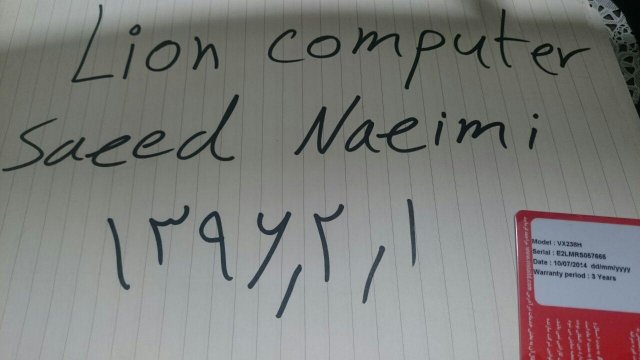 Lion computer
Saeed Naeimi
۱۳۹۶,۲,۱
Model : VX238H
Serial : E2LMRS057665
Date : 10/07/2014 dd/mm/yyyy
Warranty period : 3 Years